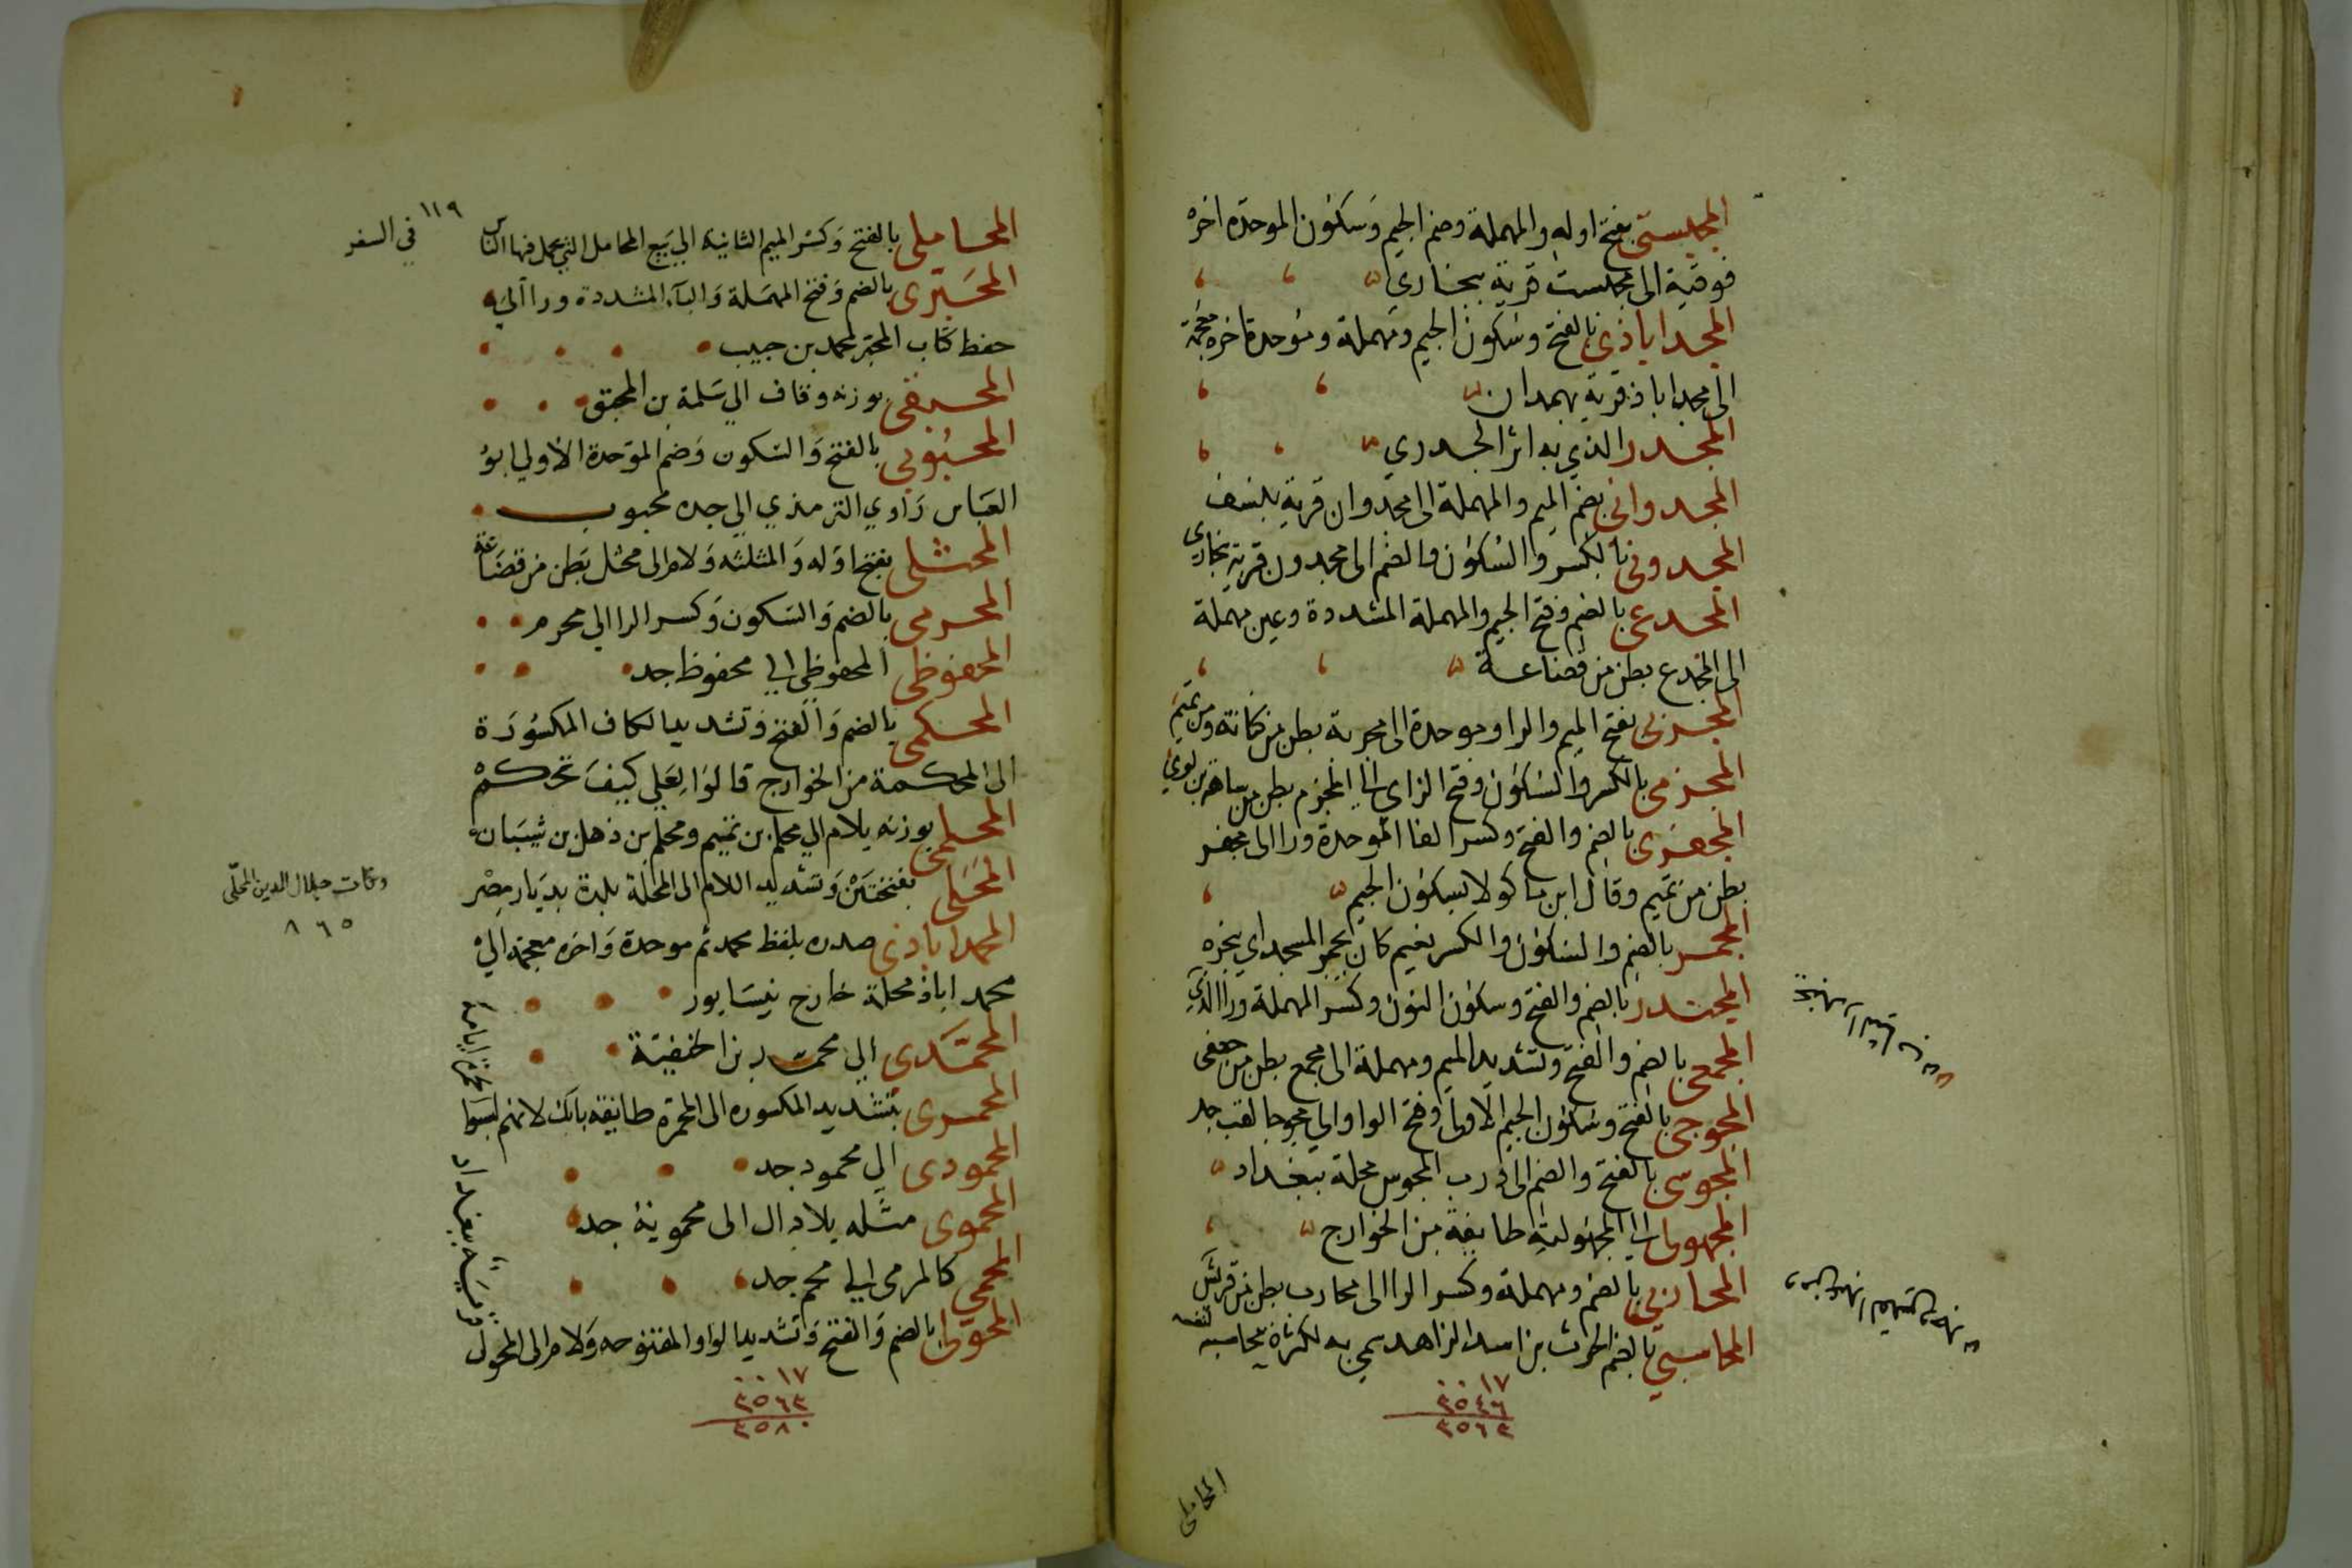 المجبستى بفتح اوله والمهملة وضم الجيم وسكون الموحدة اخره
فوقية الى مجبست قرية ببخارى
المجداباذى بالفتح وسكون الجيم ومهملة وموحدة اخره معجمة
الى مجداباذ قرية بهمدان
المجدر الذي به اثر الجدري
المجدوانى بضم الميم والمهملة الى مجدوان قرية بنسف
المجدونى بالكسر والسكون والضم الى مجدون قرية ببخارى
المجدعى بالضم وفتح الجيم والمهملة المشددة وعين مهملة
الى المجدع بطن من قضاعة
المجربى بفتح الميم والرا وموحدة الى مجربة بطن من كنانة ومن تميم
المجزمى بالكسر والسكون وفتح الزاي الى المجزم بطن من سامة بن لوي
المجفرى بالضم والفتح وكسر الفا الموحدة ورا الى مجفر
بطن من تميم وقال ابن ماكولا بسكون الجيم
المجمر بالضم والسكون والكسر نعيم كان يجمر المسجد اي يبخره
المجندر بالضم والفتح وسكون النون وكسر المهملة ورا الذي
المجمعى بالضم والفتح وتشديد الميم ومهملة الى مجمع بطن من جعفى
المجوجى بالفتح وسكون الجيم الاولى وفتح الواو الى مجوجا لقب جد
المجوسى بالفتح والضم الى درب المجوس محلة ببغداد
المجهولى الى المجهولية طايفة من الخوارج
المحاربي بالضم ومهملة وكسر الرا الى محارب بطن من قريش
المحاسبي بالضم الحرث بن اسد الزاهد سمي به لكثرة محاسبة نفسه
١٧٠٠
٣٥٤٦
٣٥٦٣
المحاملى
١١٩
المحاملى بالفتح وكسر الميم الثانية الى بيع المحامل التي يحمل فيها الناس
في السفر
المحبرى بالضم وفتح المهملة والبآء المشددة ورا الى
حفظ كتاب المحبر لمحمد بن حبيب
المحبقى بوزنه وقاف الى سلمة بن المحبق
المحبوبى بالفتح والسكون وضم الموحدة الاولى ابو
العباس راوي الترمذي الى جده محبوب
المحثلى بفتح اوله والمثلثه ولام الى محثل بطن من قضاعة
المحرمى بالضم والسكون وكسر الرا الى محرم
المحفوظى المحفوظى الى محفوظ جد
المحكمى بالضم والفتح وتشديد الكاف المكسورة
الى المحكمة من الخوارج قالوا لعلي كيف تحكم
المحلمى بوزنه بلام الى محلم بن تميم ومحلم بن ذهل بن شيبان
المحلى بفتحتين وتشديد اللام الى المحلة بلدة بديار مصر
وفات جلال الدين المحلّى
٨٦٥
المحمداباذى صدره بلفظ محمد ثم موحدة واخره معجمة الى
محمد اباذ محلة خارج نيسابور
المحمّدى الى محمد بن الحنفية
المحمرى بتشديد المكسوره الى المحمرة طايفة بابك لانهم لبسوا
المحمودى الى محمود جد
المحموى مثله بلا دال الى محموية جد
المحمي كالمرمى الى محم جد
المحولى بالضم والفتح وتشديد الواو المفتوحه ولام الى المحول
قرية ببغداد
١٧٠٠
٣٥٦٣
٣٥٨٠